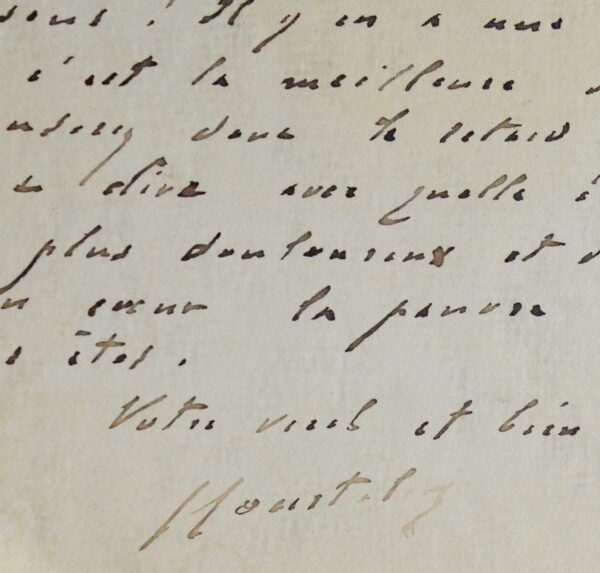 Il y en a une
c'est la meilleure
donc le retard
dire avec quelle
plus douloureux et
cœur la pauvre
êtes.
Votre vieil et bien